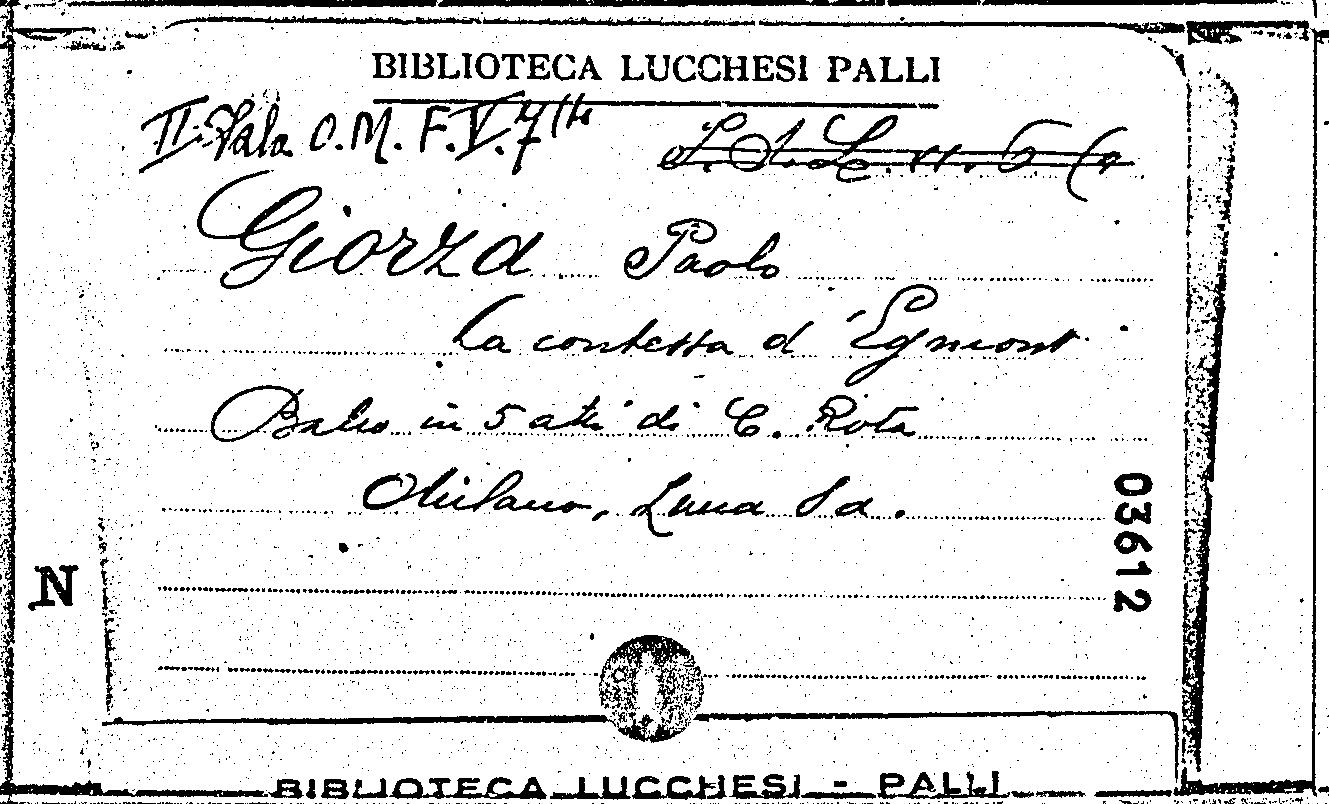 BIBLIOTECA LUCCHESI PALLI
II Sala O.M. F.V. 7
Giorza Paolo
La contessa d'Egmont
Ballo in 5 atti di C. Rota
Milano, Lucca Sd.
03612
N
BIBLIOTECA LUCCHESI - PALLI